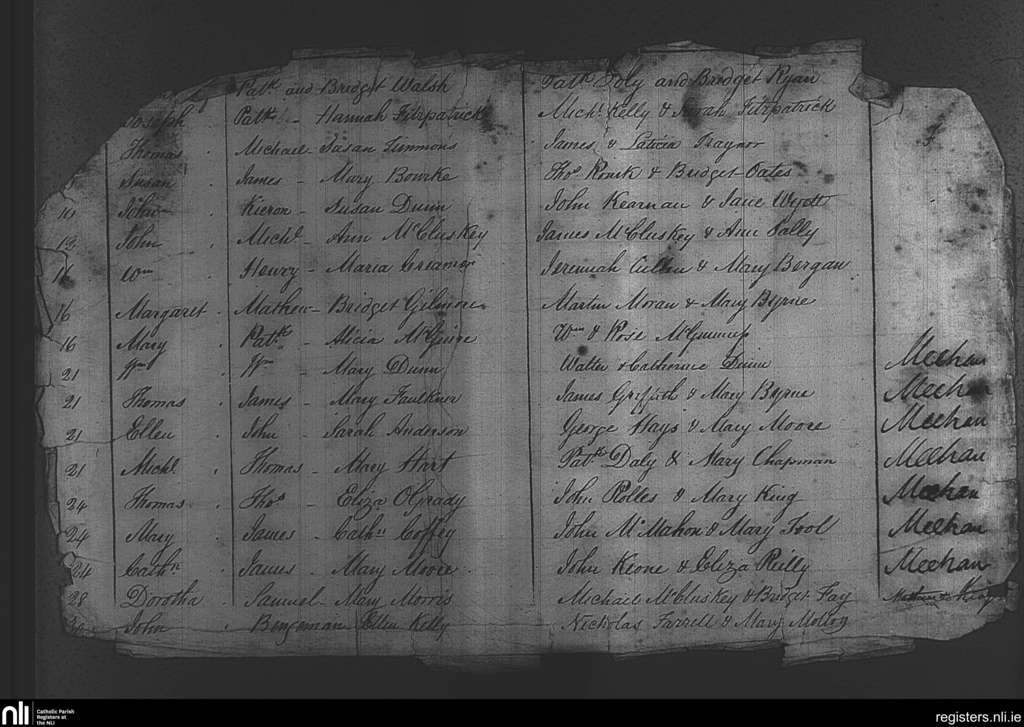 Patk and Bridget Walsh Patk Foly and Bridget Ryan
Joseph Patk - Hannah Fitzpatrick Michl Kelly & Sarah Fitzpatrick
Thomas . Michael - Susan Simmons James & Laticia Traynor
Susan . James - Mary Bourke Thos & Bridget Oates
10 John . Kieron - Susan Dunn John Kearnan & Jane
13 John . Michl - Ann McCluskey James McCluskey & Ann Lally
16 Wm . Henry - Maria Jeremiah Cullen & Mary Bergan
16 Margaret . Mathew - Bridget Gilmore Martin Moran & Mary Byrne
16 Mary . Patk - Alicia McGuire Wm & Rose
21 Wm . Wm - Mary Dunn Walter & Catherine Dunn Meehan
21 Thomas . James - Mary Faulkner James Griffith & Mary Byrne Meehan
21 Ellen . John - Sarah Anderson George Hays & Mary Moore Meehan
21 Michl . Thomas - Mary Hart Patk Daly & Mary Chapman Meehan
24 Thomas . Thos - Eliza OGrady John Rolles & Mary King Meehan
24 Mary . James - Cathn Coffey John McMahon & Mary Fool Meehan
24 Cathn . James - Mary Moore . John Keone & Eliza Reilly Meehan
28 Dorotha . Samuel - Mary Morris Michael McCluskey & Bridget Fay
John . Benjeman Ellen Kelly Nicholas Farrell & Mary Molloy
nli Catholic Parish
Registers at
the NLI
registers.nli.ie